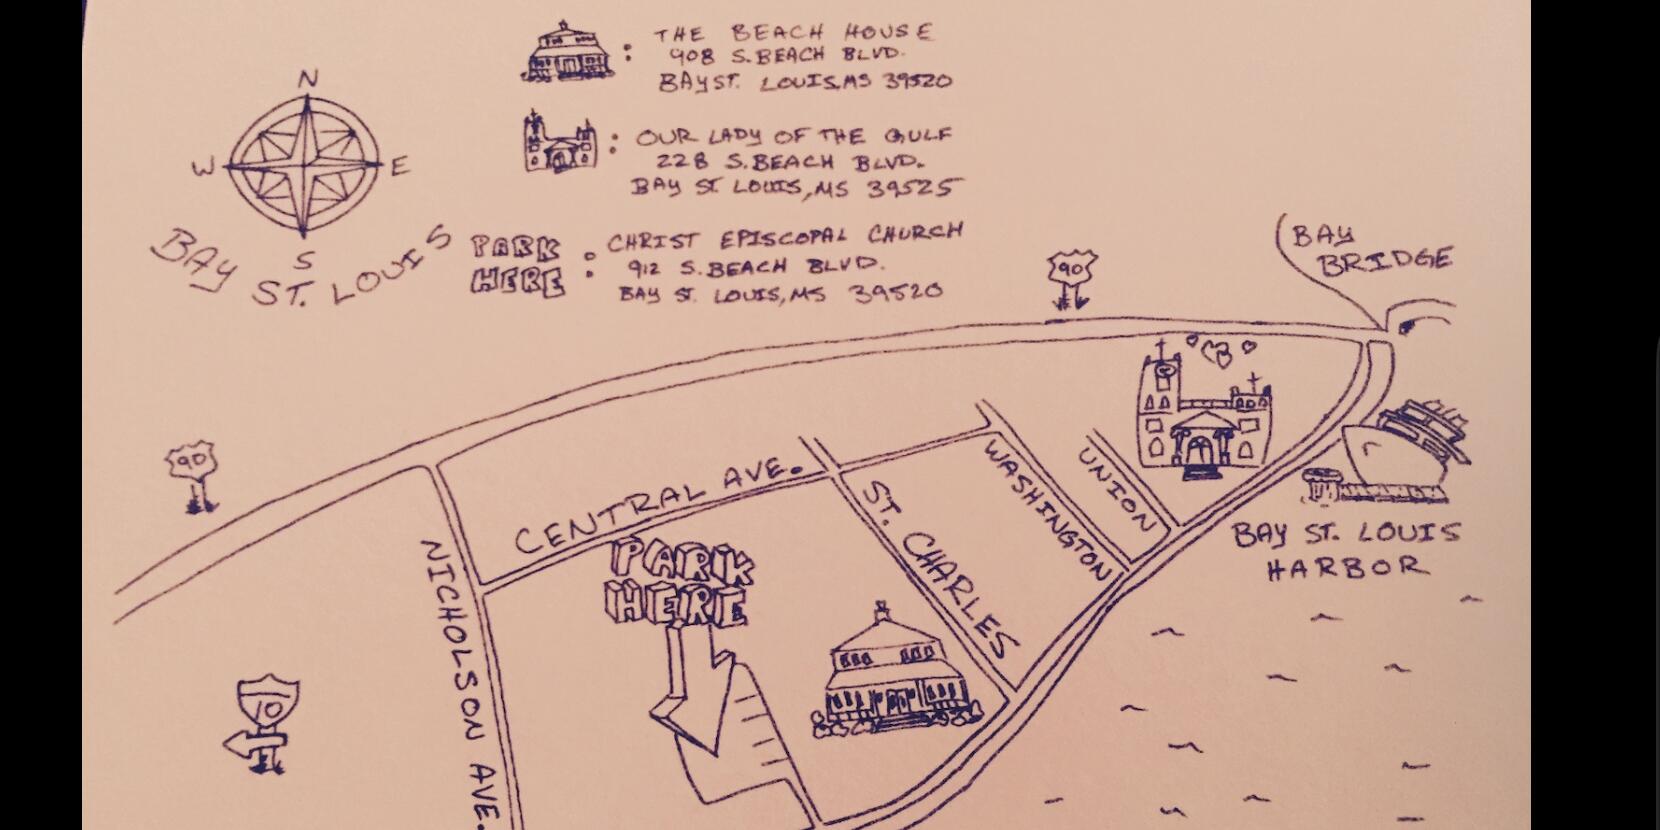 THE BEACH HOUSE
908 S. BEACH BLVD.
BAY ST. LOUIS, MS 39520
OUR LADY OF THE GULF
228 S. BEACH BLVD.
BAY ST. LOUIS, MS 39525
PARK
HERE
: CHRIST EPISCOPAL CHURCH
912 S. BEACH BLVD.
BAY ST. LOUIS, MS 39520
N
W
E
S
BAY ST. LOUIS
BAY
BRIDGE
90
90
CENTRAL AVE.
WASHINGTON
UNION
ST. CHARLES
NICHOLSON AVE.
PARK
HERE
BAY ST. LOUIS
HARBOR
10